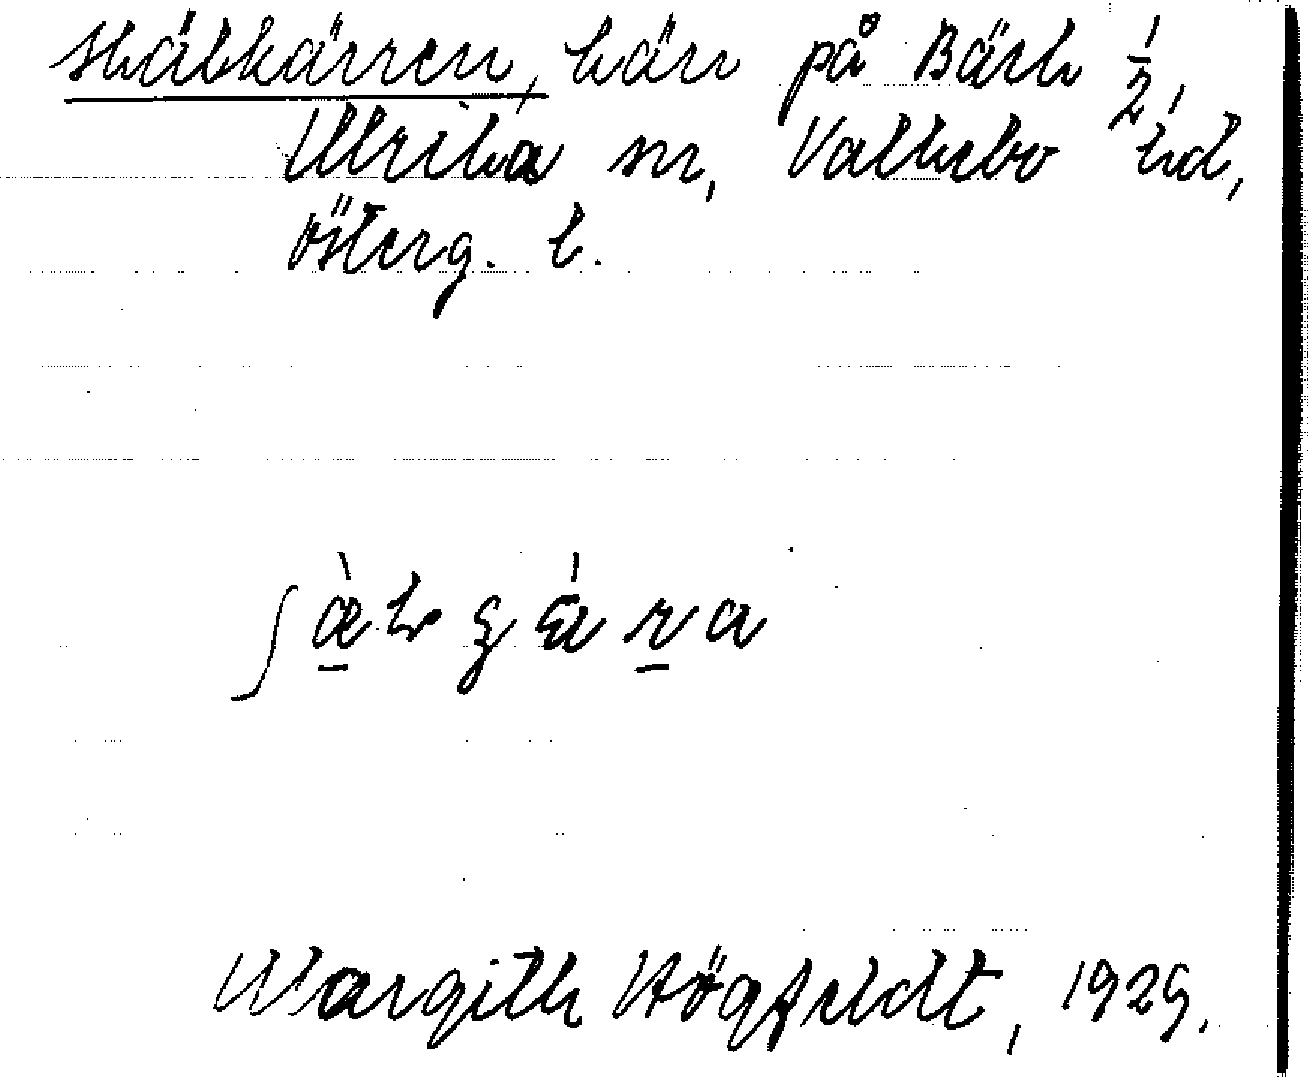 Skälkärren, kärr på Bäck 1/2,
Ulrika sn, Valkebo hd,
Österg. l.
Margith Högfeldt, 1929.